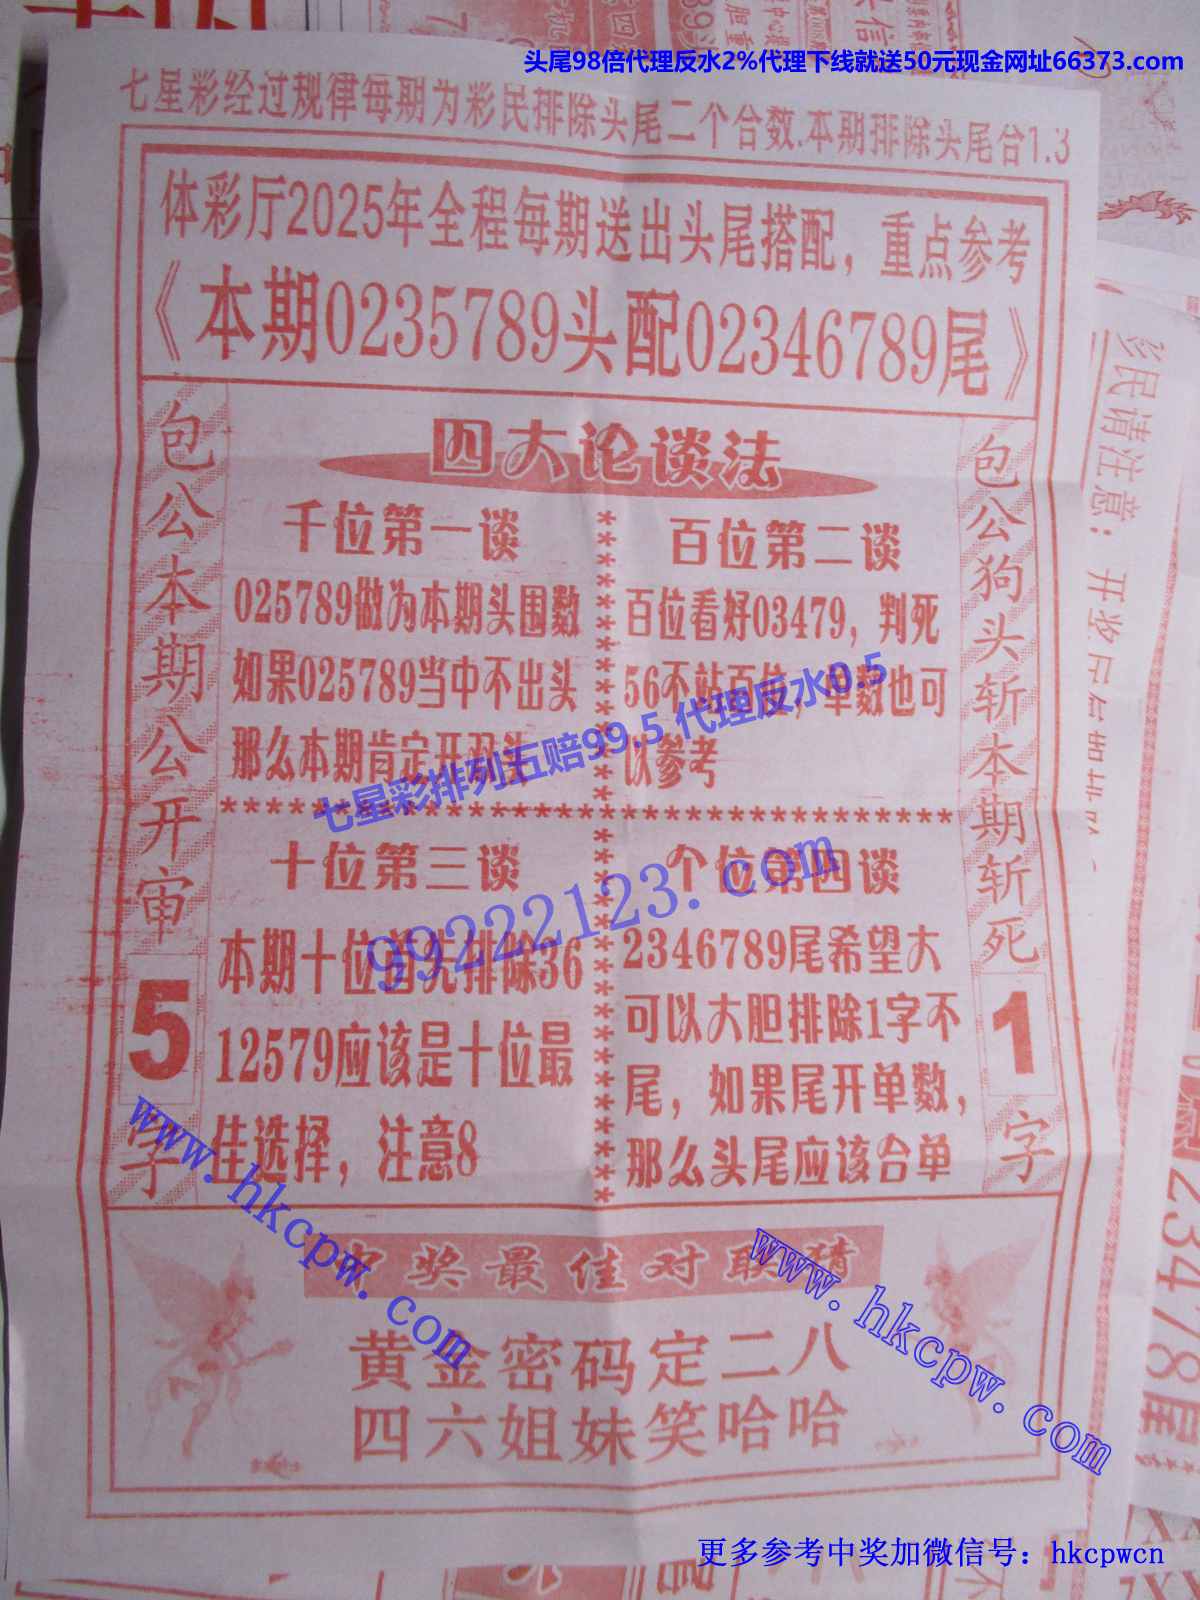 头尾98倍代理反水2%代理下线就送50元现金网址66373.com
七星彩经过规律每期为彩民排除头尾二个合数.本期排除头尾合1.3
体彩厅2025年全程每期送出头尾搭配，重点参考
《本期0235789头配02346789尾》
包公本期公开审
5
字
四大论谈法
千位第一谈
025789做为本期头围数
如果025789当中不出头
那么本期肯定开双头
百位第二谈
百位看好03479，判死
56不站百位，单数也可
以参考
十位第三谈
本期十位首先排除36
12579应该是十位最
佳选择，注意8
个位第四谈
2346789尾希望大
可以大胆排除1字不
尾，如果尾开单数，
那么头尾应该合单
包公狗头斩本期斩死
1
字
七星彩排列五赔99.5 代理反水0.5
99222123.com
www.hkcpw.com
www.hkcpw.com
中奖最佳对联猜
黄金密码定二八
四六姐妹笑哈哈
彩民请注意：开奖
23478尾
更多参考中奖加微信号：hkcpwcn